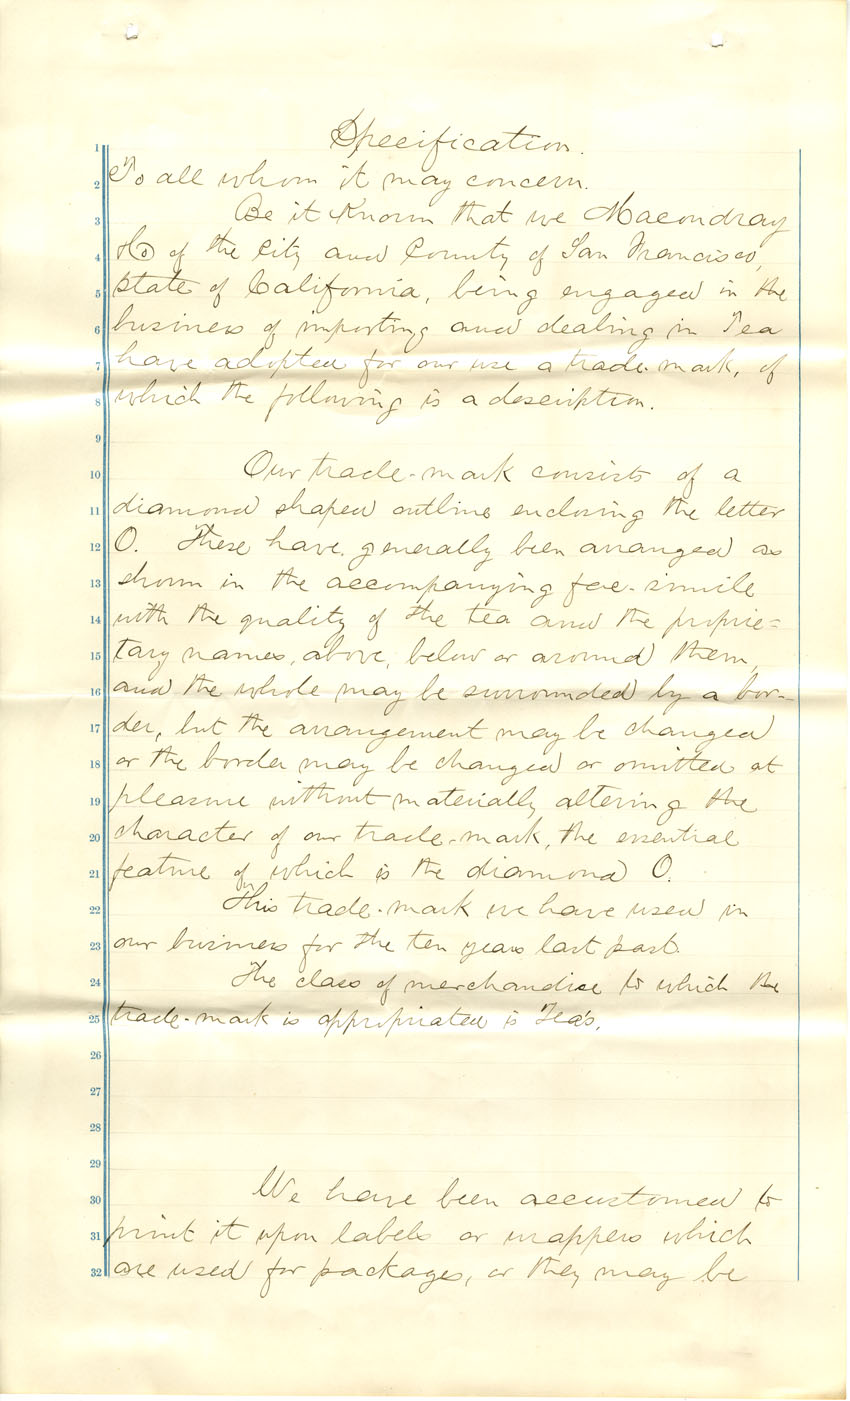 Specification.
1
To all whom it may concern.
2
Be it Known that we Macondray
3
& Co of the City and County of San Francisco,
4
State of California, being engaged in the
5
business of importing and dealing in Tea
6
have adopted for our use a trade-mark, of
7
which the following is a description.
8
9
Our trade-mark consists of a
10
diamond shaped outline enclosing the letter
11
O. These have generally been arranged as
12
shown in the accompanying fac-simile
13
with the quality of the tea and the proprie=
14
tary names, above, below or around them,
15
and the whole may be surrounded by a bor-
16
der, but the arrangement may be changed
17
or the border may be changed or omitted at
18
pleasure without materially altering the
19
character of our trade-mark, the essential
20
feature of which is the diamond O.
21
This trade-mark we have used in
22
our business for the ten years last past.
23
The class of merchandise to which the
24
trade-mark is appropriated is Tea's.
25
26
27
28
29
We have been accustomed to
30
print it upon labels or wrappers which
31
are used for packages, or they may be
32